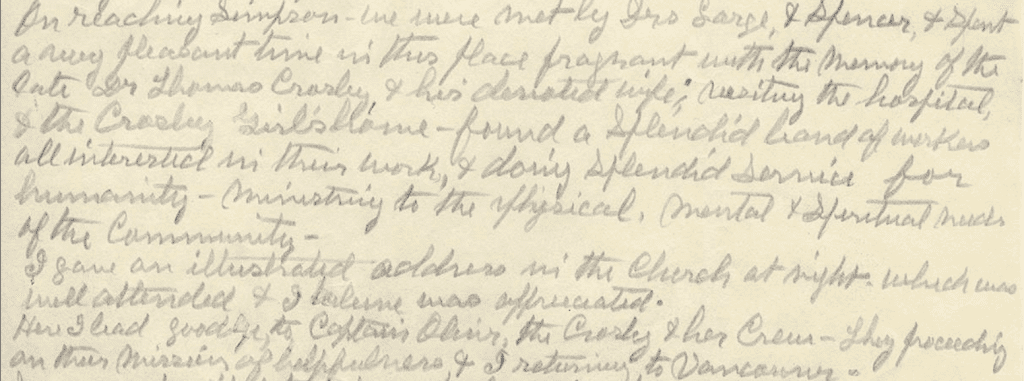 On reaching Simpson - we were met by Drs Large, & Spencer, & spent
a very pleasant time in this place fragrant with the memory of the
late Dr Thomas Crosby, & his devoted wife; visiting the hospital,
& the Crosby Girls Home - found a splendid band of workers
all interested in their work, & doing splendid service for
humanity - ministring to the physical, mental & spiritual needs
of the community -
I gave an illustrated address in the Church at night. which was
well attended & I believe was appreciated.
Here I bad good-bye to Captain Oliver, the Crosby & her Crew - They proceeding
on their mission of helpfulness, & I returning to Vancouver -